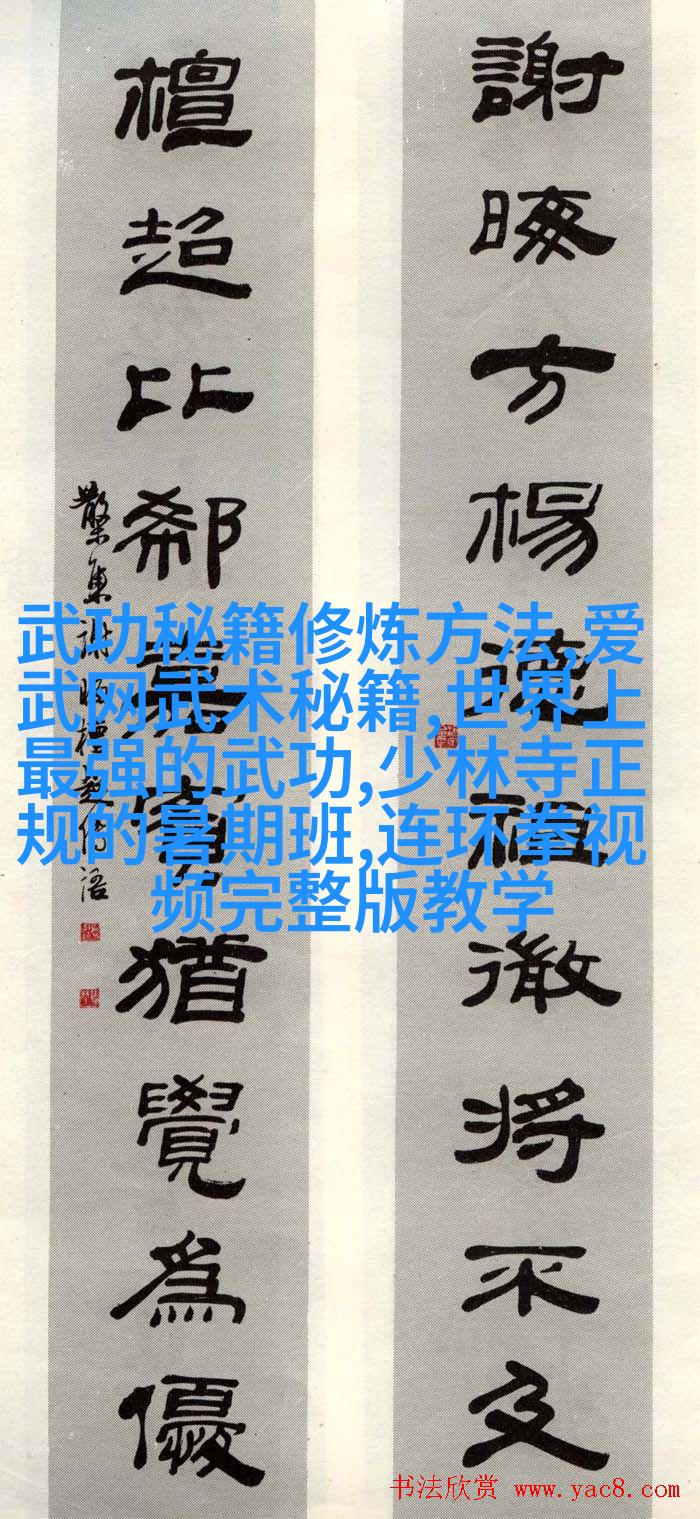 謝晦方楊德祖微將不及
檀超比郗嘉賓猶覺爲優
集謝晦檀超傳語
武功秘籍修炼方法,爱
武网武术秘籍,世界上
最强的武功,少林寺正
规的暑期班,连环拳视
频完整版教学
书法欣赏 www.yac8.com